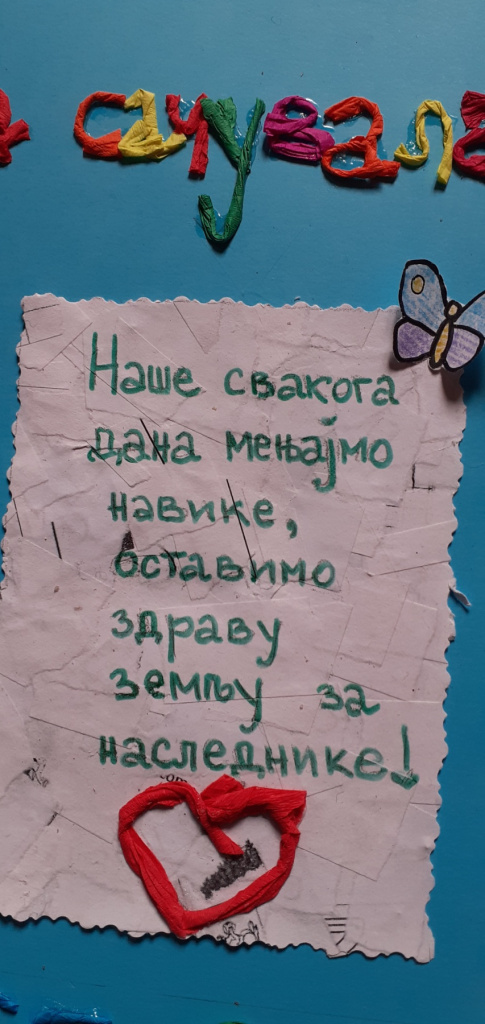 сачувала
Наше свакога
дана мењајмо
навике,
оставимо
здраву
земљу за
наследнике!